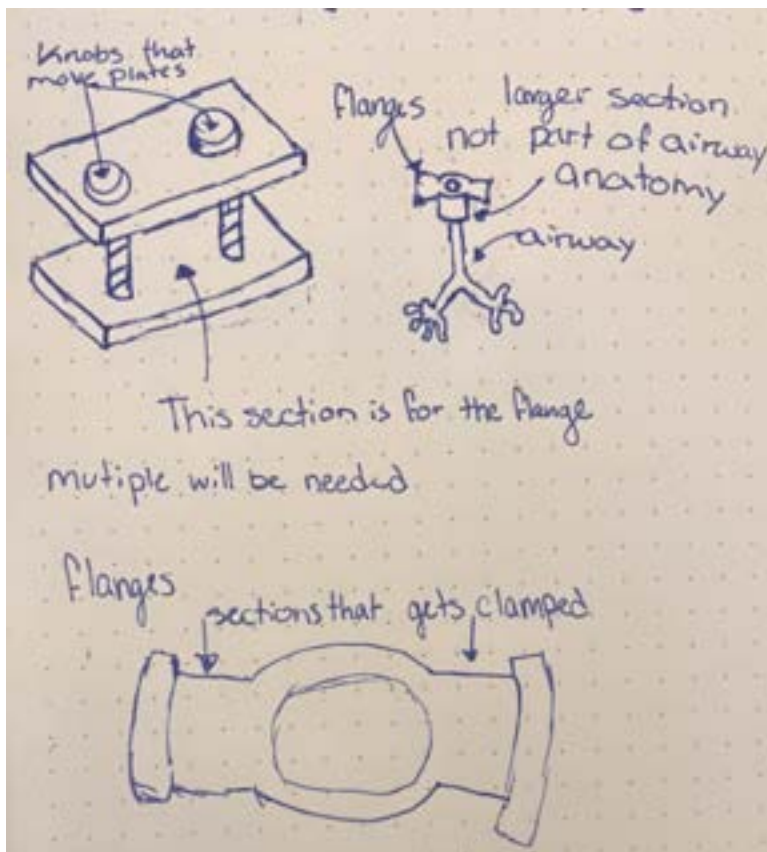 Knobs that
move plates
flanges
larger section
not part of airway
anatomy
airway
This section is for the flange
mutiple will be needed
flanges
sections that gets clamped